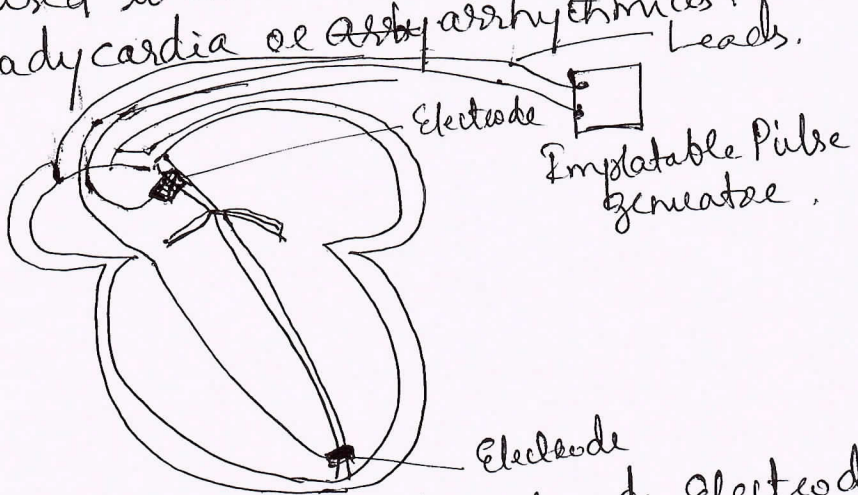 adycardia oe arrhythmias.
Leads.
Electrode
Implatable Pulse
generatoe.
Electrode
Electrod